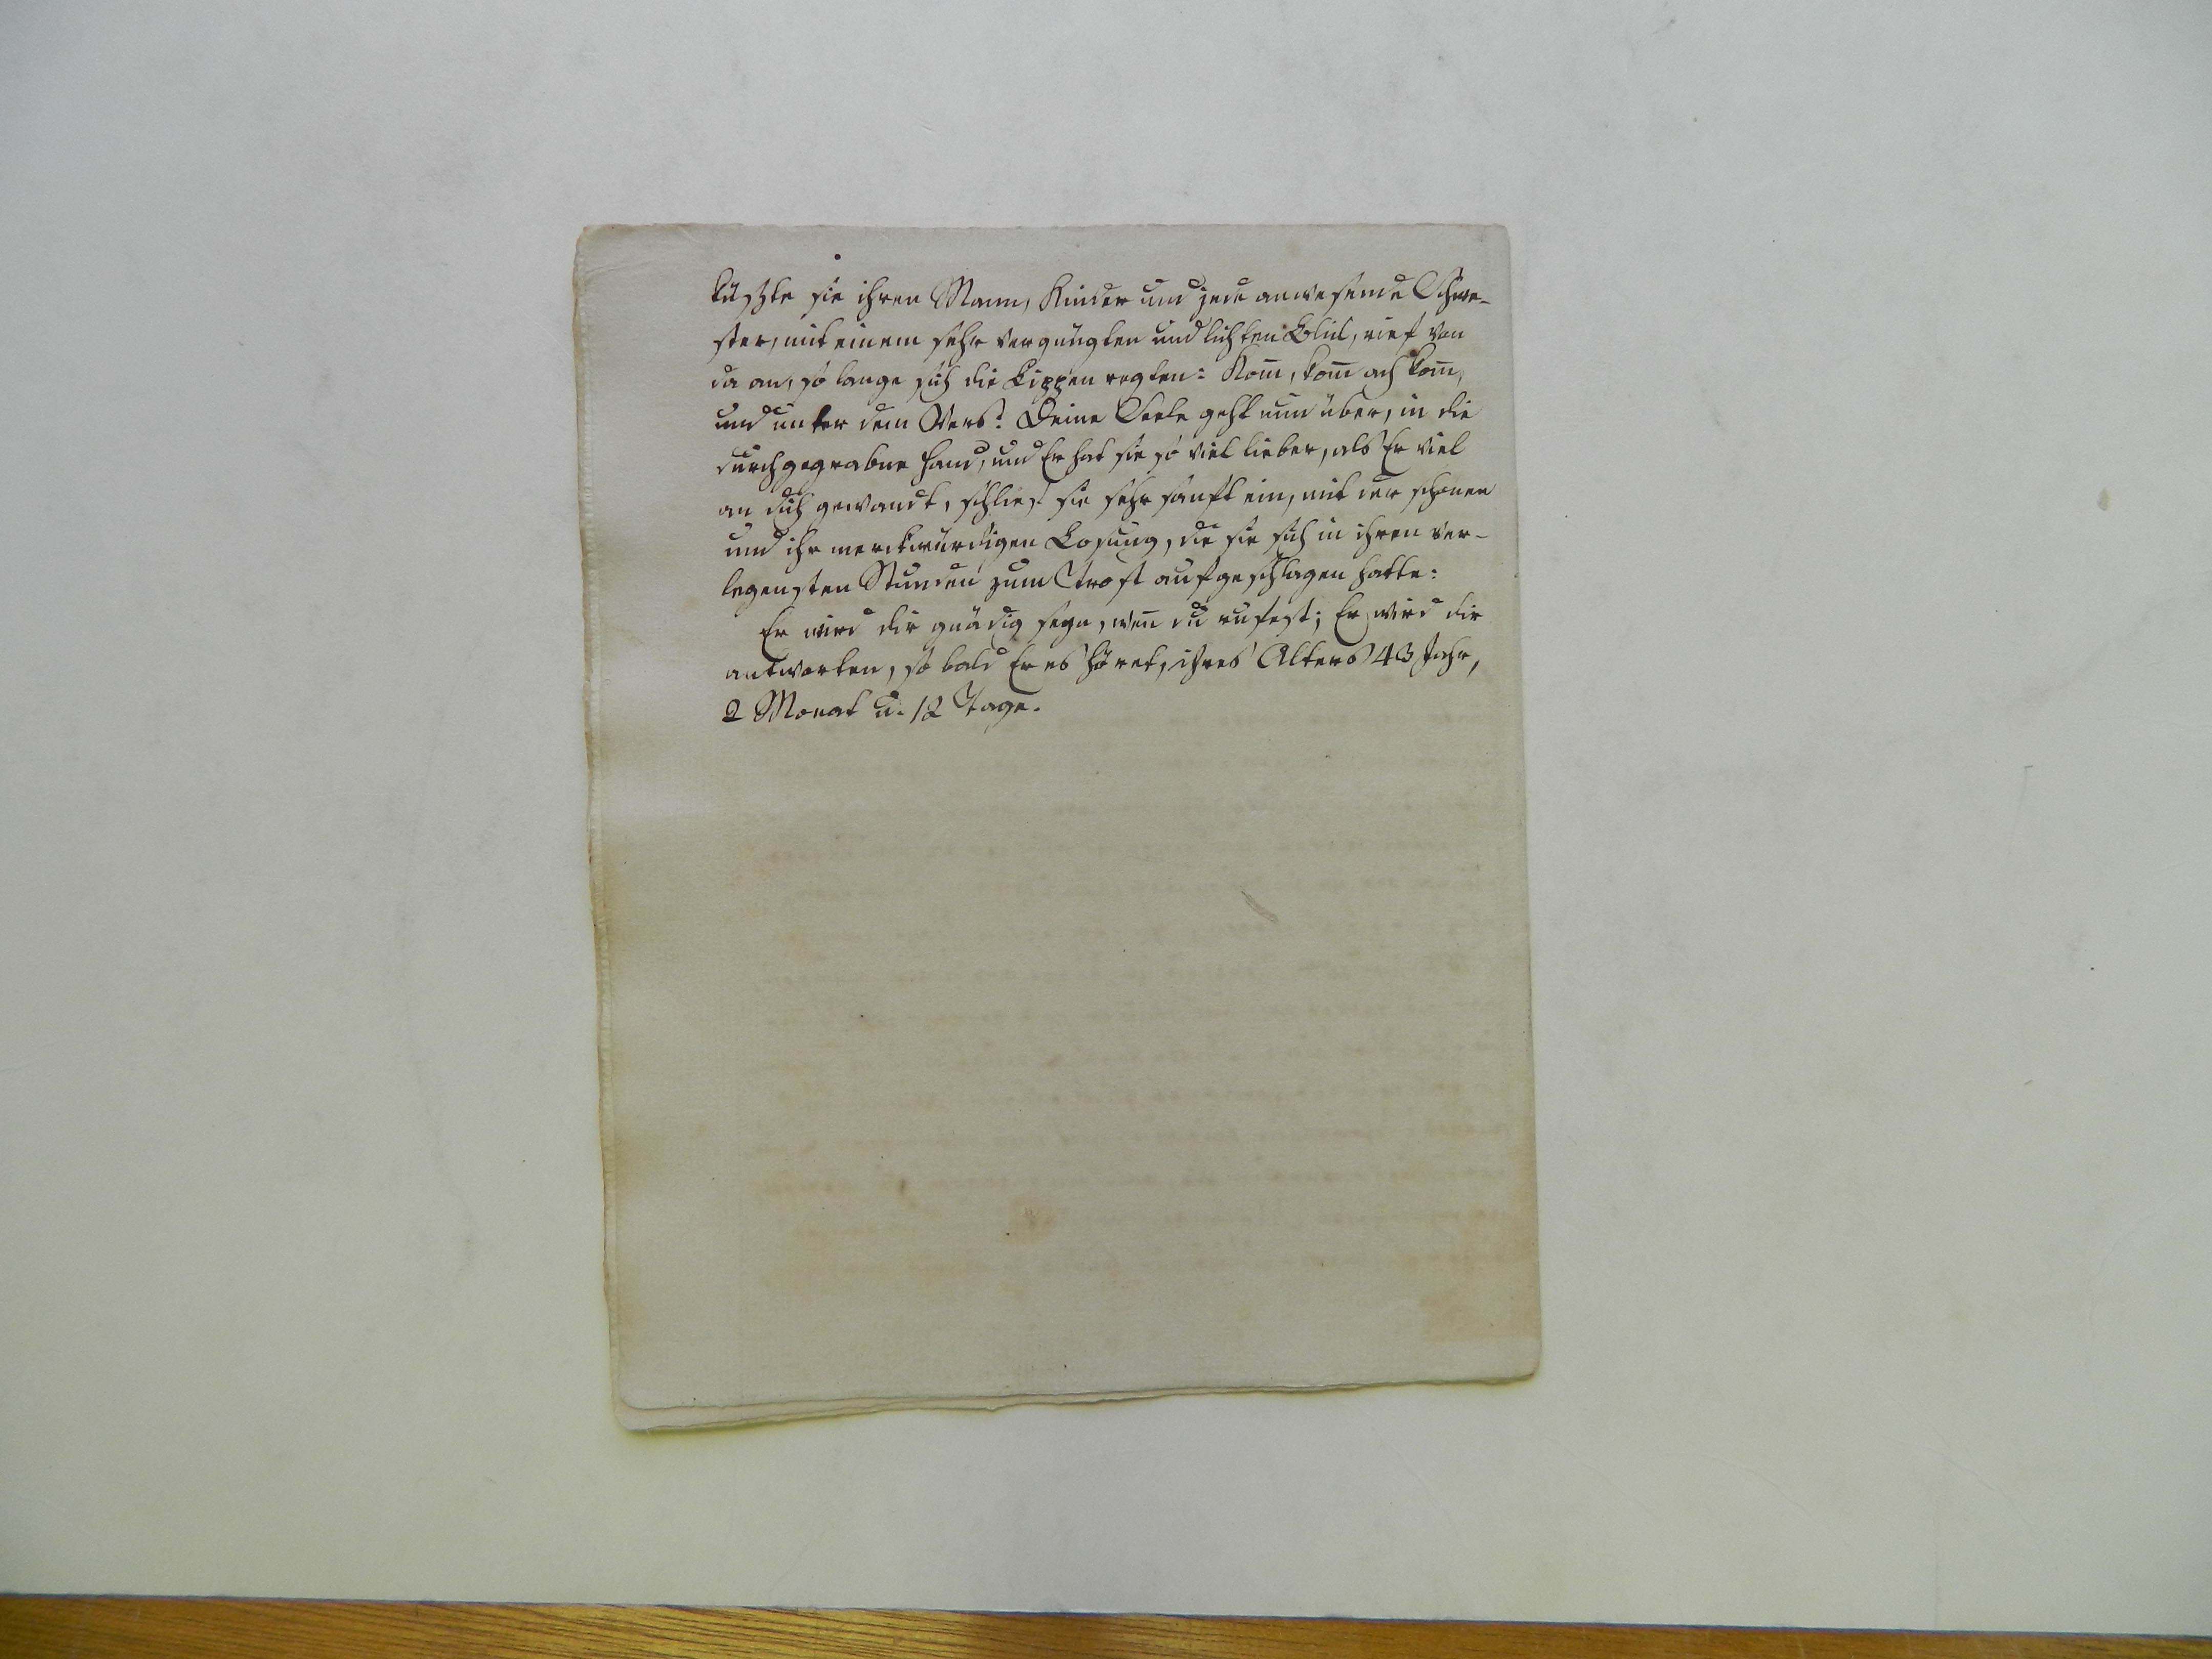 küszte sie ihren Mann, Kinder und jede anwesende Schwe-
ster, mit einem sehr vergnügten und lichten Blick, rief von
da an, so lange sich die Lippen regten: Kom̅, kom̅ ach kom̅,
und unter dem Vers: Deine Seele geht nun über, in die
durchgegrabne Hand, und Er hat sie so viel lieber, als Er viel
an dich gewandt, schlief sie sehr sanft ein, mit der schönen
und ihr merckwürdigen Losung, die sie sich in ihren ver-
legensten Stunden zum Trost aufgeschlagen hatte:
Er wird dir gnädig seyn, wen̅ du rufest; Er wird dir
antworten, so bald Er es höret, ihres Alters 43 Jahr,
2 Monat u. 12 Tage.